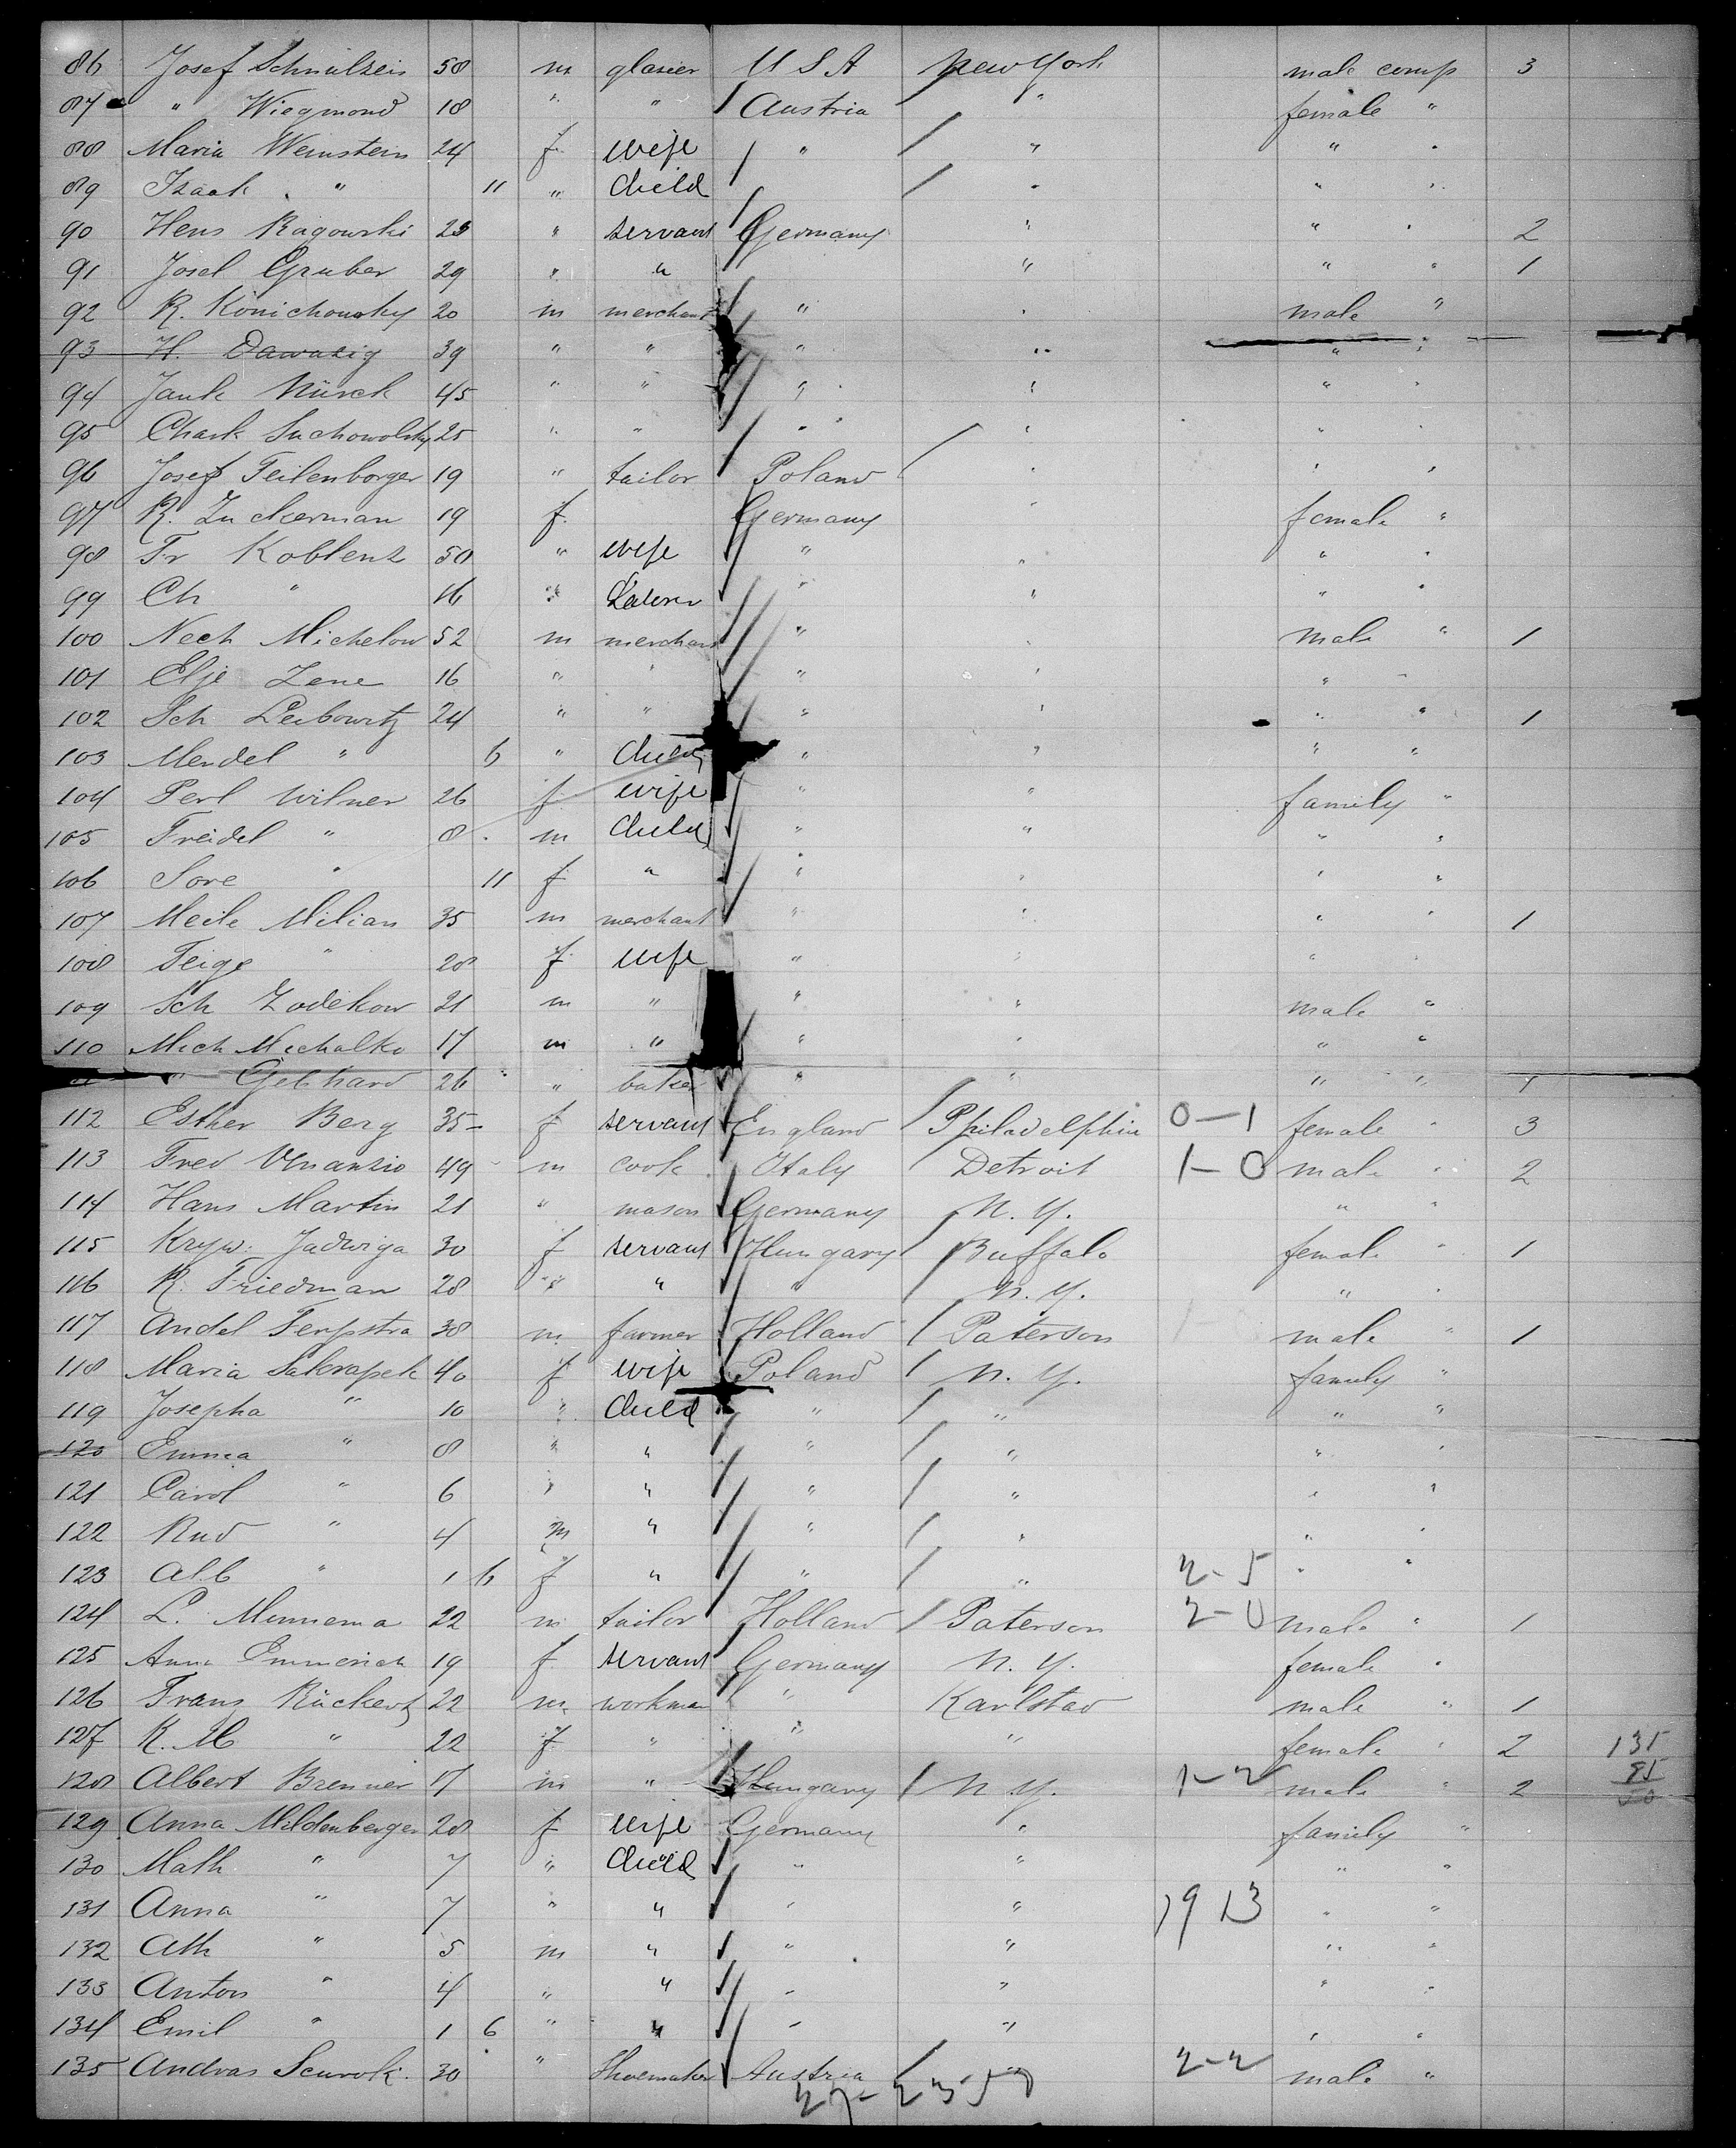 86 Josef Schnulzeis 58 m glasier USA New York male comp 3
87 " Wiegmond 18 " " Austria " female "
88 Maria Weinstein 24 f wife " " " "
89 Isaak " 11 " Child " " "
90 Hens Ragowski 23 " servant Germany " " " 2
91 Josel Gruber 29 " " " " " 1
92 R. Konichowsky 20 m merchant " " male "
93 H. Dawasig 39 " " " " " "
94 Jank Nürck 45 " " " " " "
95 Chask Suchowolsky 25 " " " " " "
96 Josef Feilenborger 19 " tailor Poland " " "
97 R. Zuckerman 19 f. Germany " female "
98 Fr Koblenz 50 " wife " " " "
99 Ch " 16 " " " " "
100 Nech Michelow 52 m merchant " " male " 1
101 Elje Zene 16 " " " " " "
102 Sch Leibowitz 24 " " " " " " 1
103 Mendel " 6 " Child " " " "
104 Perl Wilner 26 f wife " " family "
105 Freidel " 8 m Child " " " "
106 Sore " 11 f " " " " "
107 Meile Milian 35 m merchant " " " " 1
108 Feige " 28 f wife " " " "
109 Sch Zodekow 21 m " " " male "
110 Mich Michalko 17 m " " " " "
" Gebhard 26 " baker " " " " 1
112 Esther Berg 35 f servant England Philadelphia 0-1 female " 3
113 Fred 49 m cook Italy Detroit 1-0 male " 2
114 Hans Martin 21 " mason Germany N. Y. " "
115 Kryw. Jadwiga 30 f servant Hungary Buffalo female " 1
116 R. Friedman 28 " " " N. Y. " "
117 Andel Terpstra 38 m farmer Holland Paterson male " 1
118 Maria Sakrapek 40 f wife Poland N. Y. family "
119 Josepha " 10 " Child " " " "
120 Emma " 8 " " " " " "
121 Carol " 6 " " " " " "
122 Rud " 4 m " " " " "
123 Alb " 1 6 f " " " 2-5 " "
124 L. Minnema 22 m tailor Holland Paterson 2-0 male " 1
125 Anna Emmerich 19 f servant Germany N. Y. female "
126 Frans Rückertz 22 m workman " Karlstad male " 1
127 K. M " 22 f " " " female " 2 135
128 Albert Brenner 17 m " Hungary N. Y. 1-2 male " 2 85
129 Anna Mildenberger 28 f wife Germany " family "
130 Math " 7 " Child " " " "
131 Anna " 7 " " " " 1913 " "
132 Ath " 5 m " " " " "
133 Anton " 4 " " " " " "
134 Emil " 1 6 " " " " " "
135 Andras Scurok. 30 " Shoemaker Austria " 2-2 male "